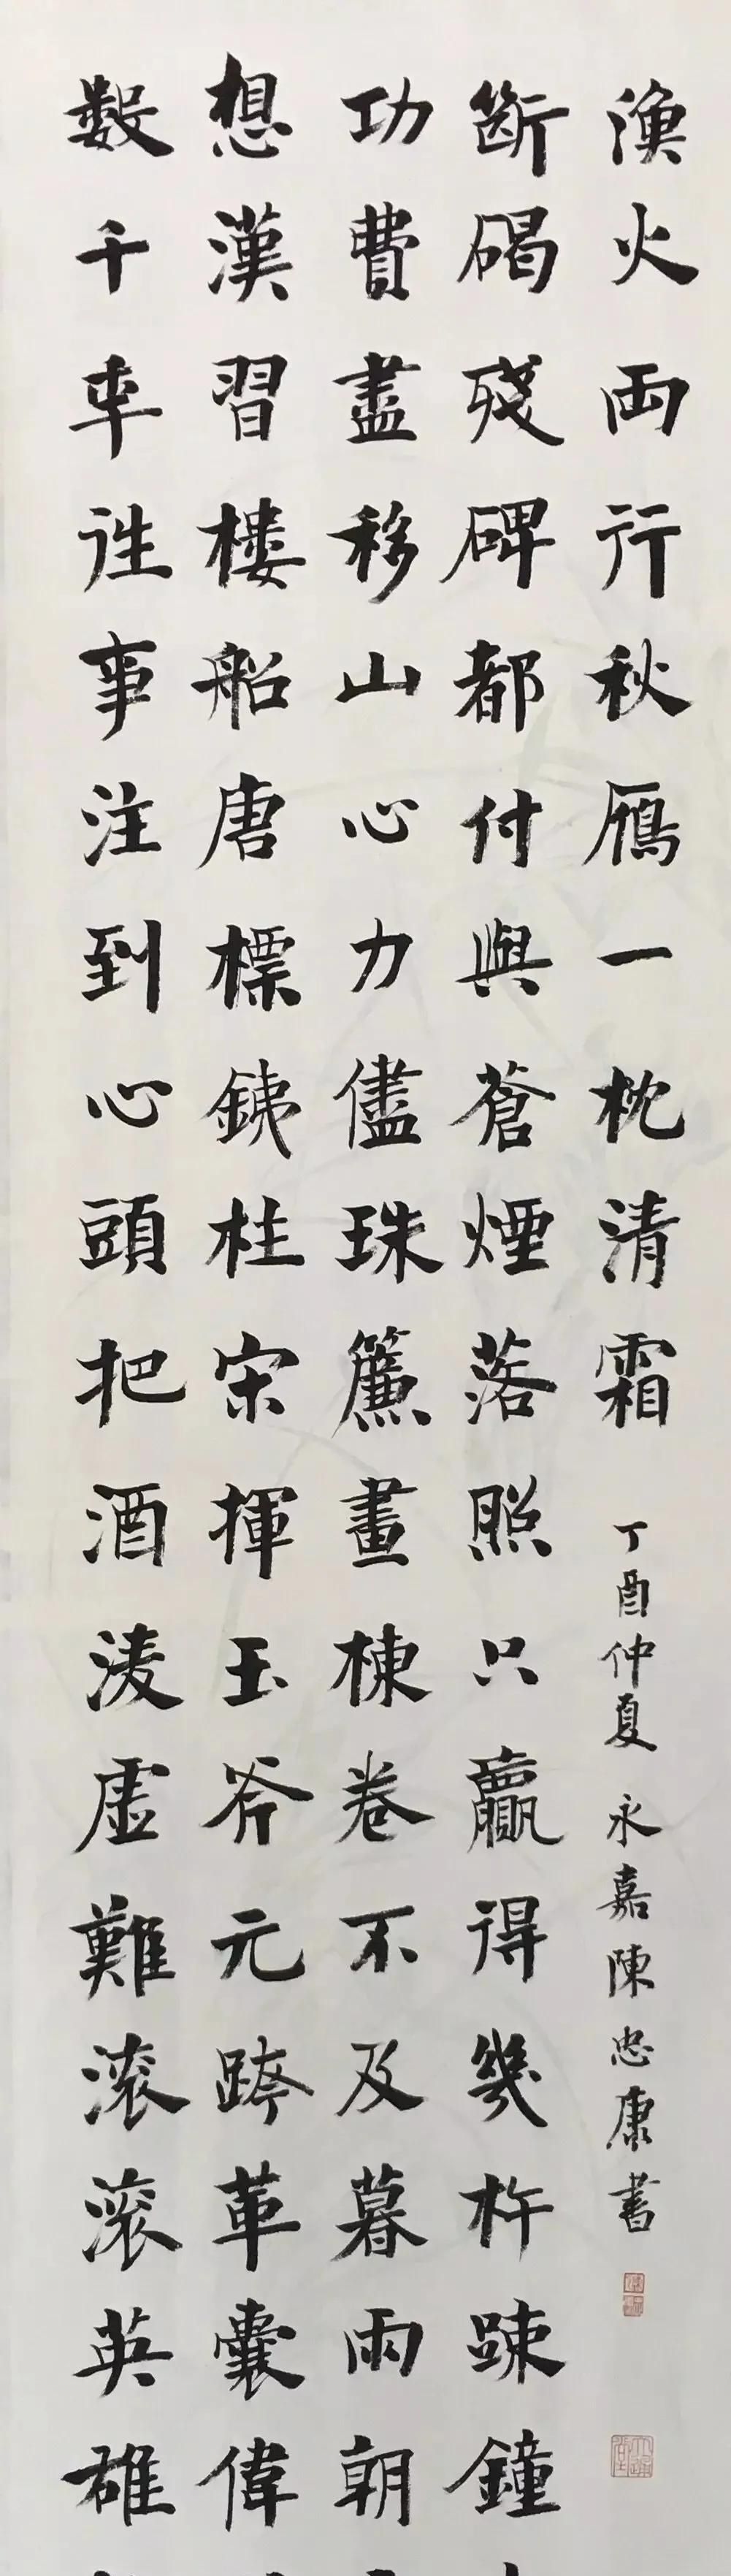 數千年往事注到心頭把酒淩虛難滾滾英雄
想漢習樓船唐標銕柱宋揮玉斧元跨革囊偉
功費盡移山心力儘珠簾畫棟卷不及暮雨朝
斷碣殘碑都付與蒼煙落照只贏得幾杵踈鐘
漁火兩行秋鴈一枕清霜 丁酉仲夏 永嘉陳忠康書